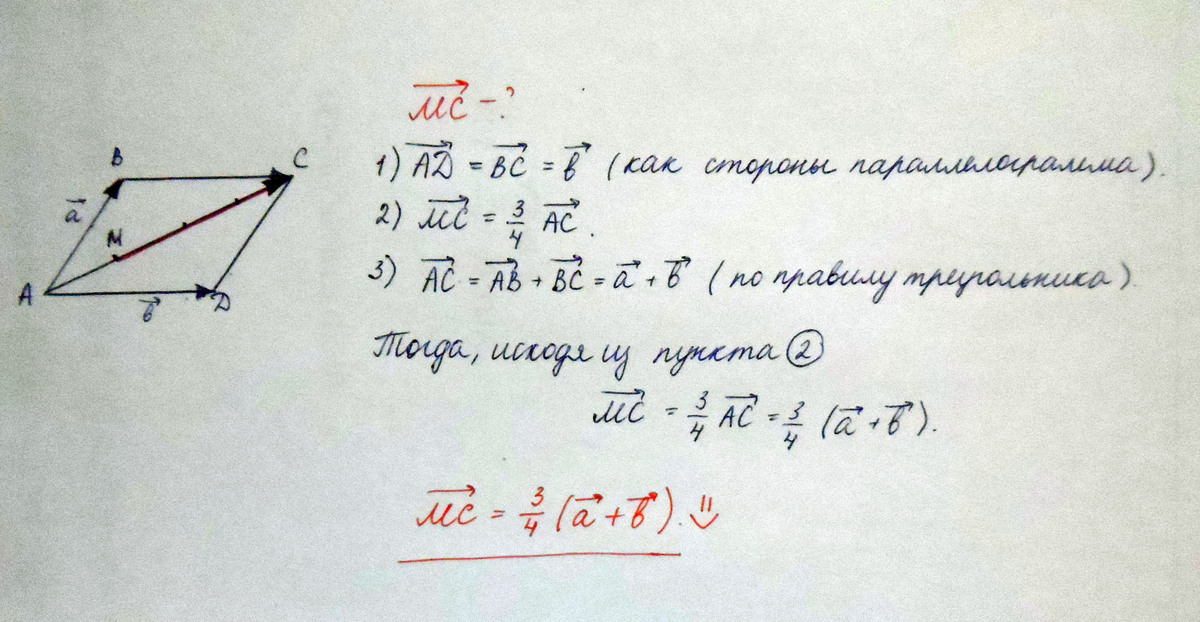 MC⃗ - ?
1) AD⃗ = BC⃗ = b⃗ (как стороны параллелограмма).
2) MC⃗ = 3/4 AC⃗.
3) AC⃗ = AB⃗ + BC⃗ = a⃗ + b⃗ (по правилу треугольника).
Тогда, исходя из пункта ②
MC⃗ = 3/4 AC⃗ = 3/4 (a⃗ + b⃗).
MC⃗ = 3/4 (a⃗ + b⃗).
B
C
a⃗
M
A
b⃗
D